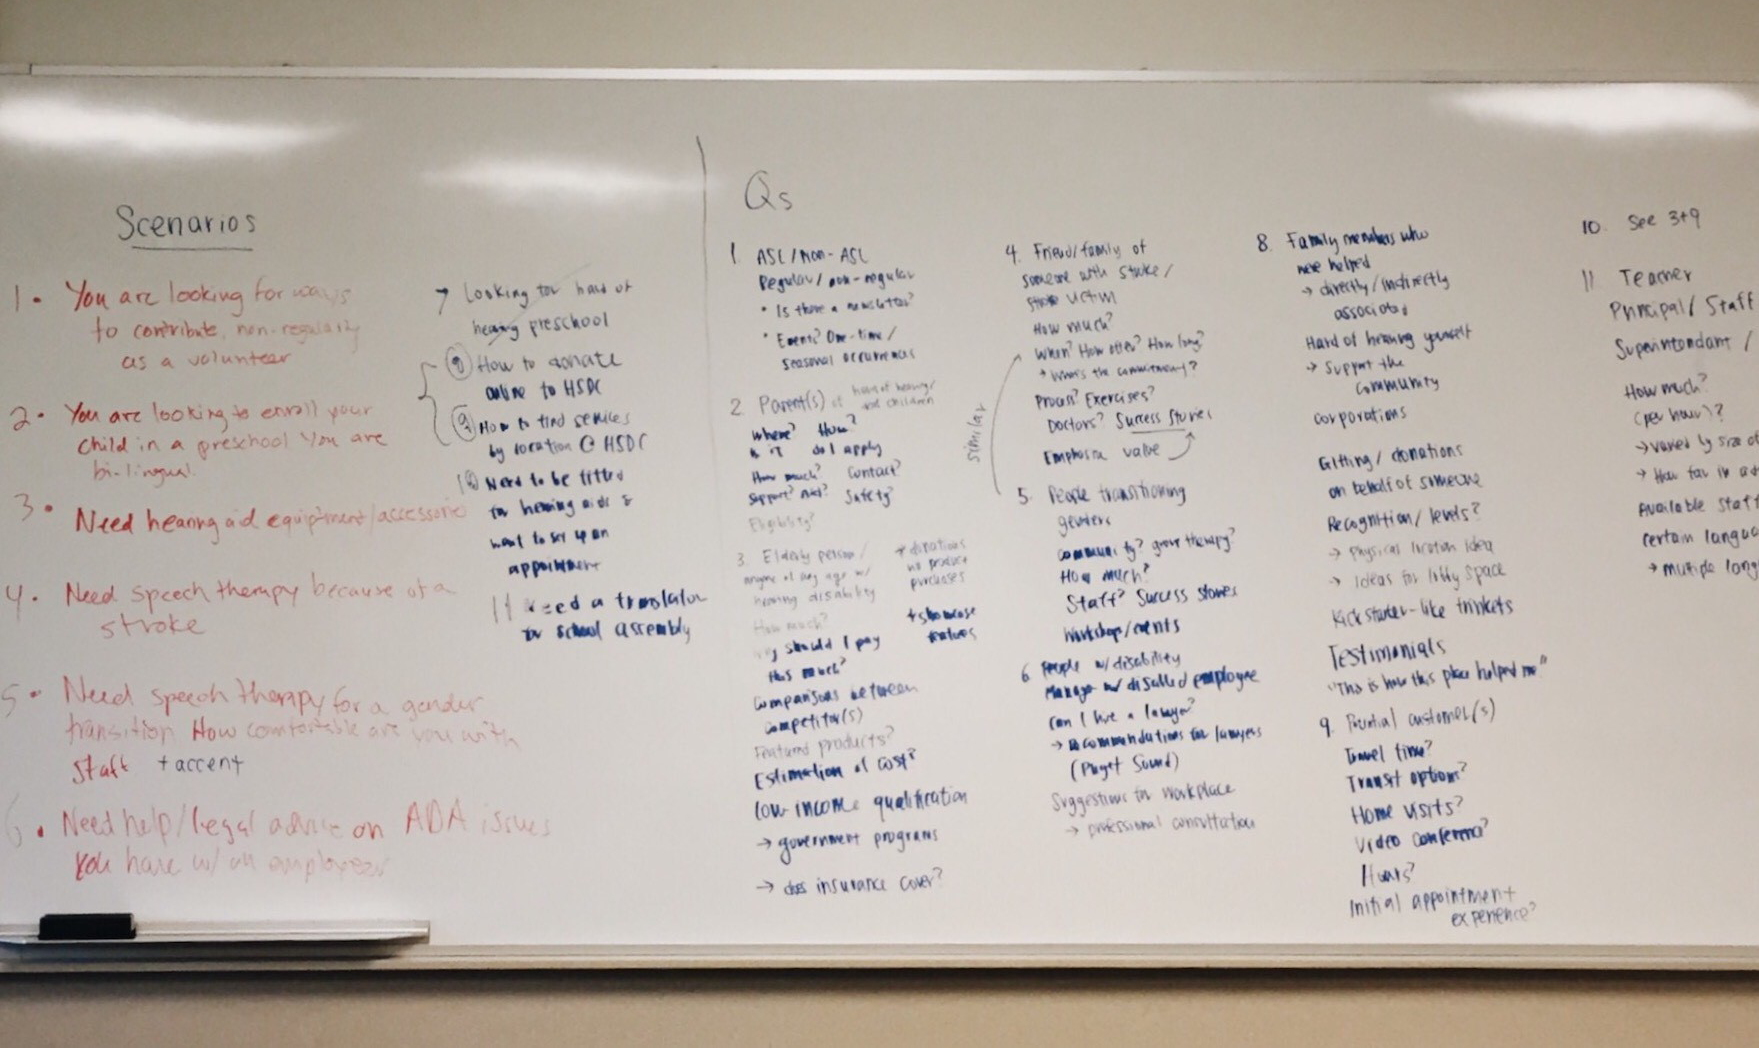 Scenarios
1. You are looking for ways
to contribute, non-regularly
as a volunteer
2. You are looking to enroll your
child in a preschool You are
bi-lingual.
3. Need hearing aid equiptment/accessories
4. Need speech therapy because of a
stroke
5. Need speech therapy for a gender
transition How comfortable are you with
staff + accent
6. Need help/legal advice on ADA issues
you have w/ an employee
7 Looking for hard of
hearing preschool
8 How to donate
online to HSDC
9 How to find services
by location @ HSDC
10 Need to be fitted
for hearing aids &
want to set up an
appointment
11 Need a translator
for school assembly
Qs
1. ASL/Non-ASL
Regular/non-regular
• Is there a newsletter?
• Events? One-time/
seasonal occurrences
2. Parent(s) of hard of hearing/
children
Where? How?
is it do I apply
How much? Contact?
Support? Safety?
Eligibility?
3. Elderly person/
anyone of any age w/
hearing disability
+ donations
no product
purchases
How much?
Why should I pay
this much?
+ showcase
features
Comparisons between
competitor(s)
Featured products?
Estimation of cost?
low income qualification
→ government programs
→ does insurance cover?
4. Friend/family of
someone with stroke/
stroke victim
How much?
When? How often? How long?
→ What's the commitment?
Process? Exercises?
Doctors? Success stories
Emphasize value
similar
5. People transitioning
genders
community? group therapy?
How much?
Staff? Success stories
Workshops/events
6. People w/ disability
Manager w/ disabled employee
Can I hire a lawyer?
→ recommendations for lawyers
(Puget Sound)
Suggestions for workplace
→ professional consultation
8. Family members who
were helped
→ directly/indirectly
associated
Hard of hearing yourself
→ Support the
community
corporations
Gifting/donations
on behalf of someone
Recognition/levels?
→ Physical location idea
→ Ideas for lobby space
Kickstarter-like trinkets
Testimonials
"This is how this place helped me"
9. Potential customer(s)
Travel time?
Transit options?
Home visits?
Video conference?
Hours?
Initial appointment
experience?
10. See 3+9
11 Teacher
Principal/Staff
Superintendant/
How much?
(per hour)?
→ varied by size of
→ How far in
Available staff
certain
→ multiple